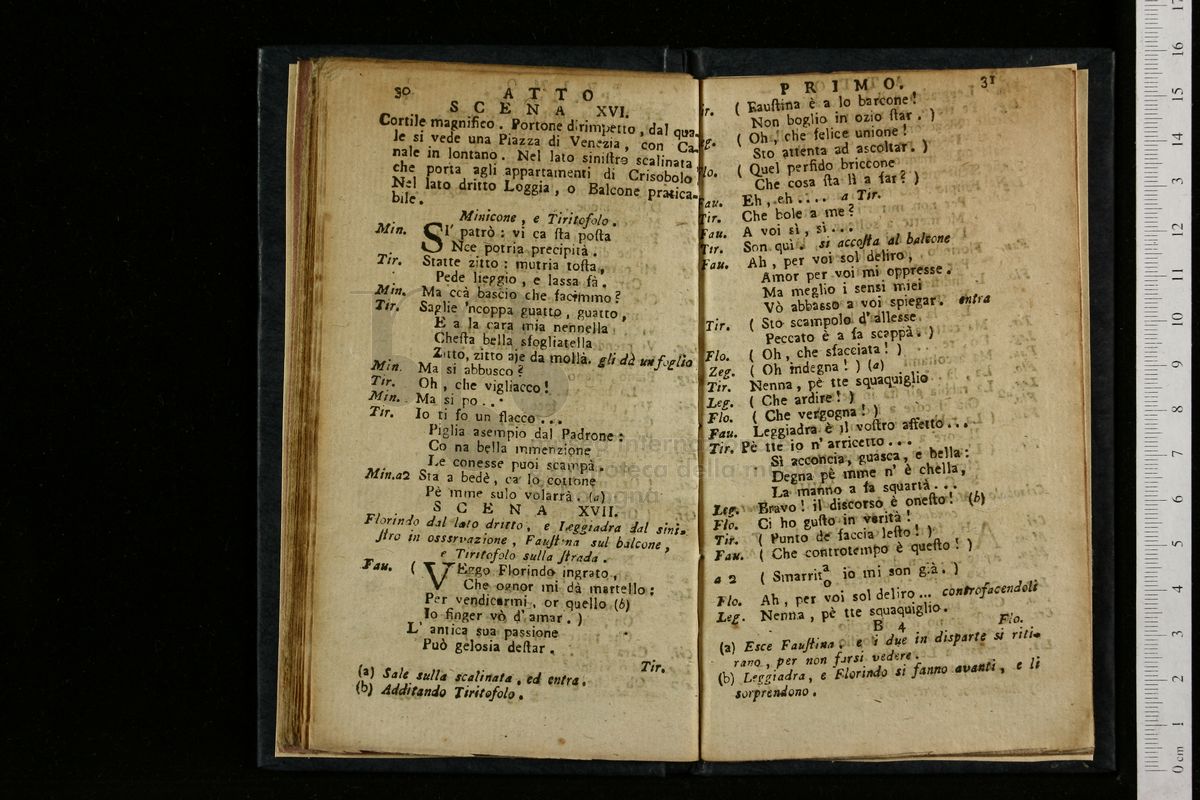 30 ATTO
SCENA XVI.
Cortile magnifico. Portone dirimpetto, dal qua-
le si vede una Piazza di Venezia, con Ca-
nale in lontano. Nel lato sinistro scalinata
che porta agli appartamenti di Crisobolo
Nel lato dritto Loggia, o Balcone pratica-
bile.
Minicone, e Tiritofolo.
Min. SI' patrò: vi ca sta posta
Nce potria precipità.
Tir. Statte zitto: mutria tosta,
Pede lieggio, e lassa fà.
Min. Ma ccà bascio che facimmo?
Tir. Saglie 'ncoppa guatto, guatto,
E a la cara mia nennella
Chesta bella sfogliatella
Zitto, zitto aje da mollà. gli dà un foglio
Min. Ma si abbusco?
Tir. Oh, che vigliacco!
Min. Ma si po...
Tir. Io ti fo un flacco...
Piglia asempio dal Padrone:
Co na bella mmenzione
Le conesse puoi scampà.
Min.a2 Sta a bedè, ca lo cottone
Pè mme sulo volarrà. (a)
SCENA XVII.
Florindo dal lato dritto, e Leggiadra dal sini-
stro in osservazione, Faustina sul balcone,
e Tiritofolo sulla strada.
Fau. ( VEggo Florindo ingrato,
Che ognor mi dà martello:
Per vendicarmi, or quello (b)
Io finger vò d'amar. )
L'antica sua passione
Può gelosia destar.
Tir.
(a) Sale sulla scalinata, ed entra.
(b) Additando Tiritofolo.
PRIMO. 31
ir. ( Faustina è a lo barcone!
Non boglio in ozio star. )
eg. ( Oh, che felice unione!
Sto attenta ad ascoltar. )
lo. ( Quel perfido briccone
Che cosa sta lì a far? )
Fau. Eh, eh.... a Tir.
Tir. Che bole a me?
Fau. A voi sì, sì...
Tir. Son qui. si accosta al balcone
Fau. Ah, per voi sol deliro,
Amor per voi mi oppresse.
Ma meglio i sensi miei
Vò abbasso a voi spiegar. entra
Tir. ( Sto scampolo d'allesse
Peccato è a fa scappà. )
Flo. ( Oh, che sfacciata! )
Zeg. ( Oh indegna! ) (a)
Tir. Nenna, pè tte squaquiglio
Leg. ( Che ardire! )
Flo. ( Che vergogna! )
Fau. Leggiadra è il vostro affetto...
Tir. Pè tte io n'arricetto...
Sì acconcia, guasca, e bella:
Degna pè mme n'è chella,
La manno a fa squartà...
Leg. Bravo! il discorso è onesto! (b)
Flo. Ci ho gusto in verità!
Tir. ( Punto de faccia lesto! )
Fau. ( Che controtempo è questo! )
a 2 ( Smarrit a/o io mi son già. )
Flo. Ah, per voi sol deliro... controfacendoli
Leg. Nenna, pè tte squaquiglio.
B 4 Flo.
(a) Esce Faustina, e i due in disparte si riti-
rano, per non farsi vedere.
(b) Leggiadra, e Florindo si fanno avanti, e li
sorprendono.